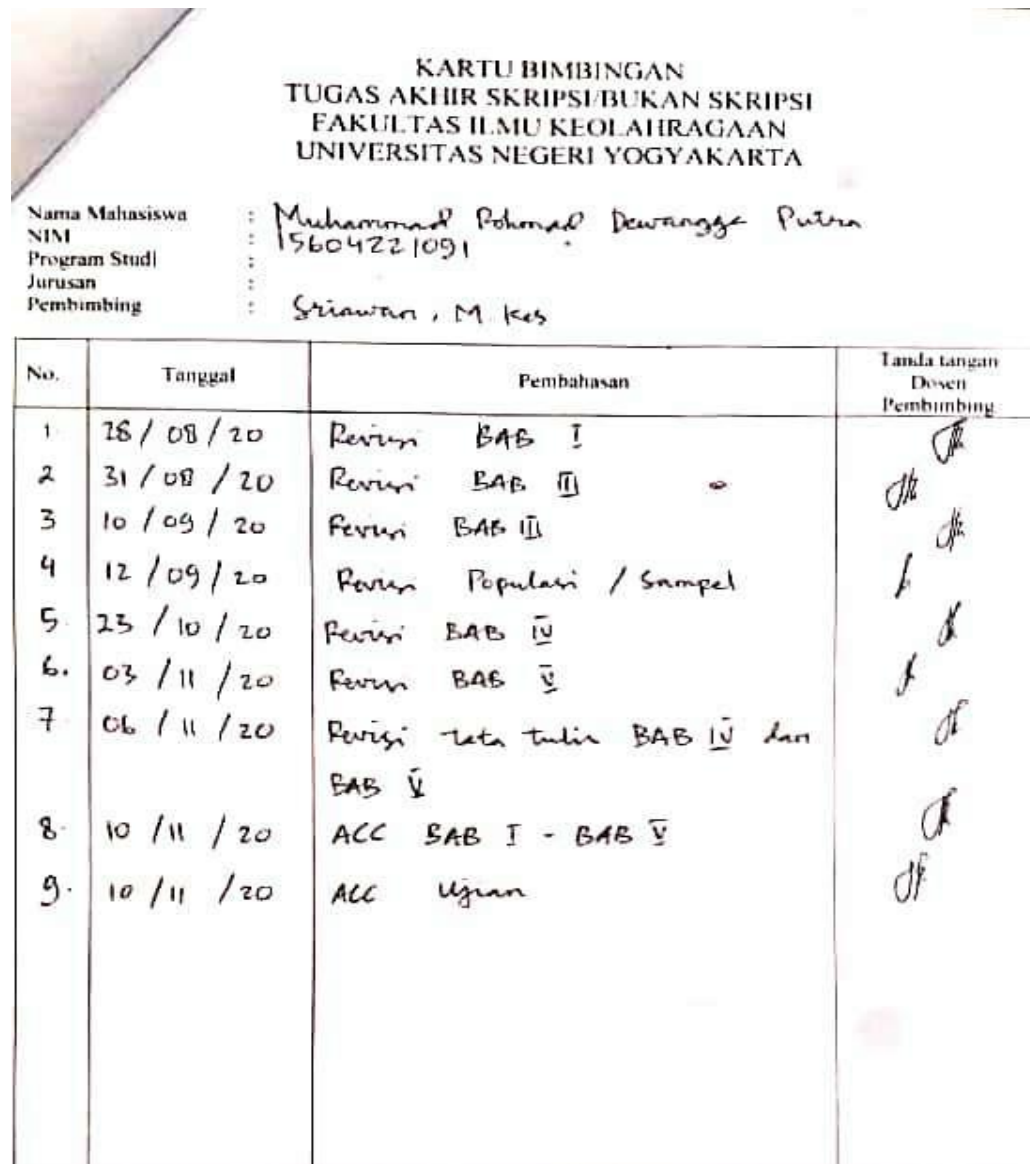 KARTU BIMBINGAN
TUGAS AKHIR SKRIPSI/BUKAN SKRIPSI
FAKULTAS ILMU KEOLAHRAGAAN
UNIVERSITAS NEGERI YOGYAKARTA
Nama Mahasiswa : Muhammad Rohmad Dewangga Putra
NIM : 15604221091
Program Studi :
Jurusan :
Pembimbing : Sriawan, M. Kes
No. Tanggal Pembahasan Tanda tangan
Dosen
Pembimbing
1. 28/08/20 Revisi BAB I
2 31/08/20 Revisi BAB III
3 10/09/20 Revisi BAB III
4 12/09/20 Revisi Populasi / Sampel
5. 23/10/20 Revisi BAB IV
6. 03/11/20 Revisi BAB V
7. 06/11/20 Revisi tata tulis BAB IV dan
BAB V
8. 10/11/20 ACC BAB I - BAB V
9. 10/11/20 ACC Ujian